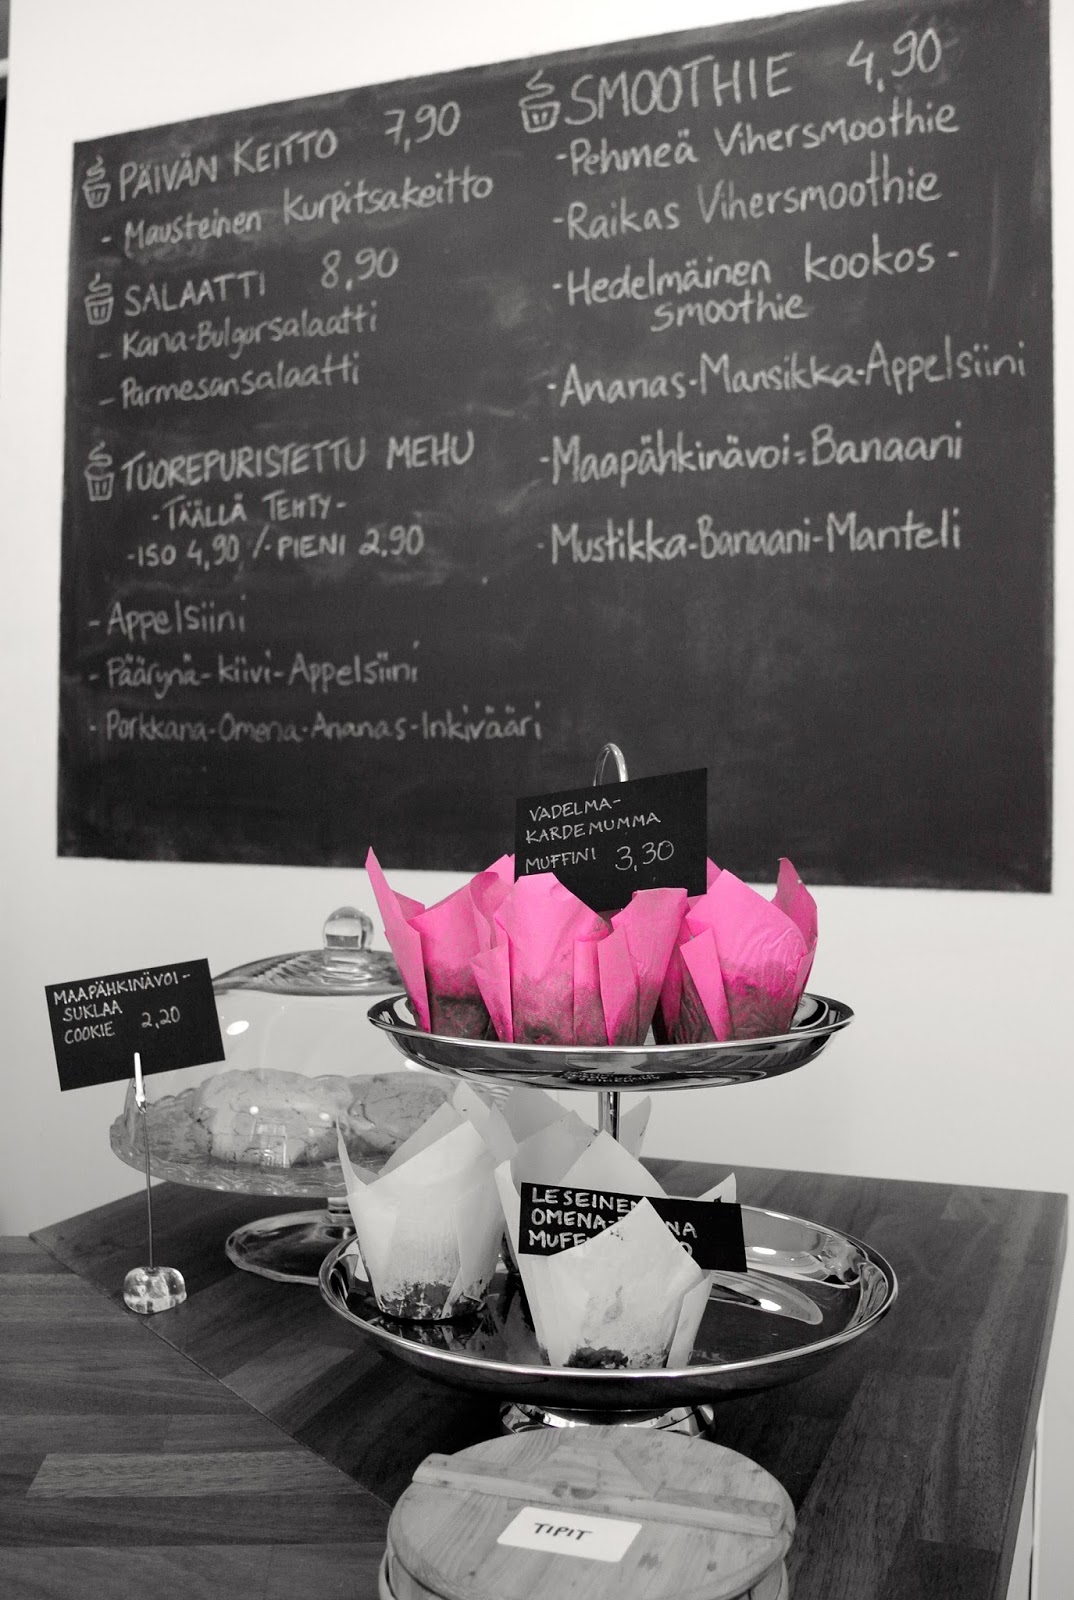 PÄIVÄN KEITTO 7,90
- Mausteinen Kurpitsakeitto
SALAATTI 8,90
- Kana-Bulgursalaatti
- Parmesansalaatti
TUOREPURISTETTU MEHU
-TÄÄLLÄ TEHTY-
-ISO 4,90 /-PIENI 2,90
- Appelsiini
- Päärynä-kiivi-Appelsiini
- Porkkana-Omena-Ananas-Inkivääri
SMOOTHIE 4,90
-Pehmeä Vihersmoothie
-Raikas Vihersmoothie
-Hedelmäinen kookos-
smoothie
-Ananas-Mansikka-Appelsiini
-Maapähkinävoi-Banaani
-Mustikka-Banaani-Manteli
VADELMA-
KARDEMUMMA
MUFFINI 3,30
MAAPÄHKINÄVOI-
SUKLAA
COOKIE 2,20
LESEINEN
OMENA-
TIPIT